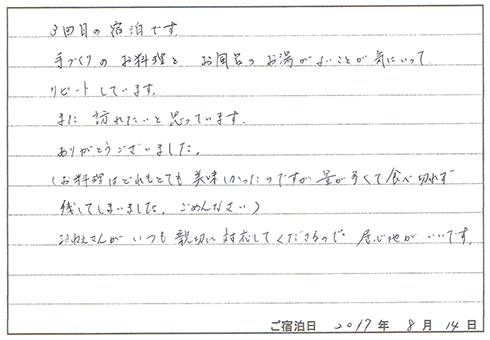 3回目の宿泊です
手づくりのお料理と お風呂のお湯がよいことが気にいって
リピートしています。
また 訪れたいと思っています。
ありがとうございました。
(お料理はどれもとても美味しかったのですが量が多くて食べ切れず
残してしまいました。ごめんなさい)
おねえさんが いつも 親切に対応してくださるので 居心地がいいです。
ご宿泊日 2017年 8月 14日